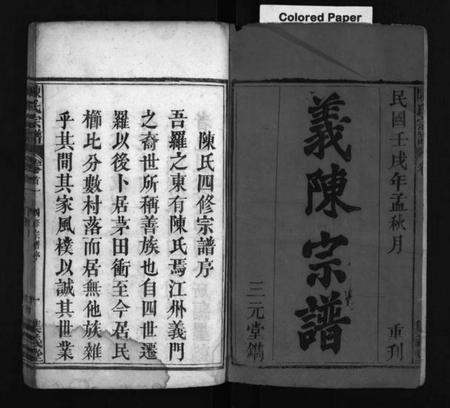 Colored Paper
民國壬戌年孟秋月
重刊
義陳宗譜
三元堂鐫
陳氏四修宗譜序
吾羅之東有陳氏焉江州義門
之裔世所稱善族也自四世遷
羅以後卜居茅田衝至今居民
櫛比分數村落而居無他族雜
乎其間其家風樸以誠其世業
陳氏宗譜
四修宗譜序
一